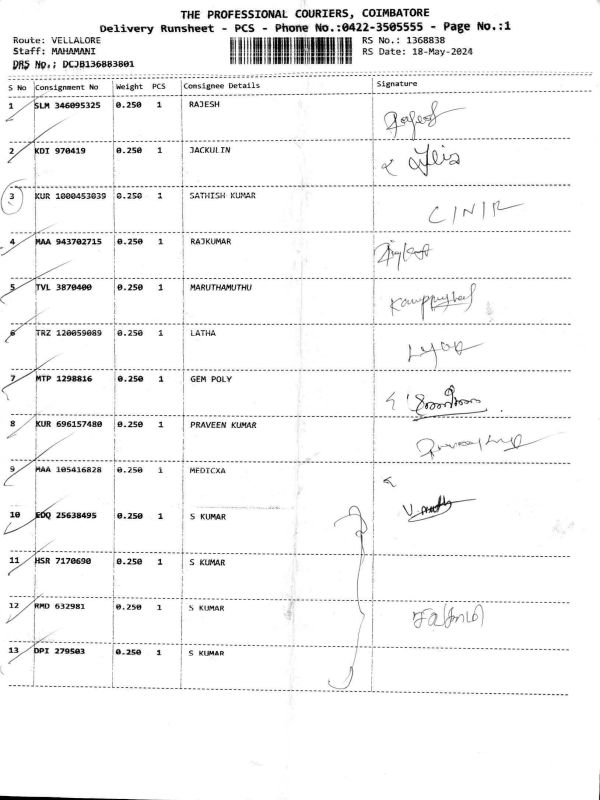 THE PROFESSIONAL COURIERS, COIMBATORE
Delivery Runsheet - PCS - Phone No.:0422-3505555 - Page No.:1
Route: VELLALORE RS No.: 1368838
Staff: MAHAMANI RS Date: 18-May-2024
DRS No.; DCJB136883801
S No Consignment No Weight PCS Consignee Details Signature
1 SLM 346095325 0.250 1 RAJESH
2 KDI 970419 0.250 1 JACKULIN
3 KUR 1000453039 0.250 1 SATHISH KUMAR C/N/R
4 MAA 943702715 0.250 1 RAJKUMAR
5 TVL 3870400 0.250 1 MARUTHAMUTHU
6 TRZ 120059089 0.250 1 LATHA
7 MTP 1298816 0.250 1 GEM POLY
8 KUR 696157480 0.250 1 PRAVEEN KUMAR
9 MAA 105416828 0.250 1 MEDICXA
10 EDQ 25638495 0.250 1 S KUMAR
11 HSR 7170690 0.250 1 S KUMAR
12 RMD 632981 0.250 1 S KUMAR
13 DPI 279503 0.250 1 S KUMAR